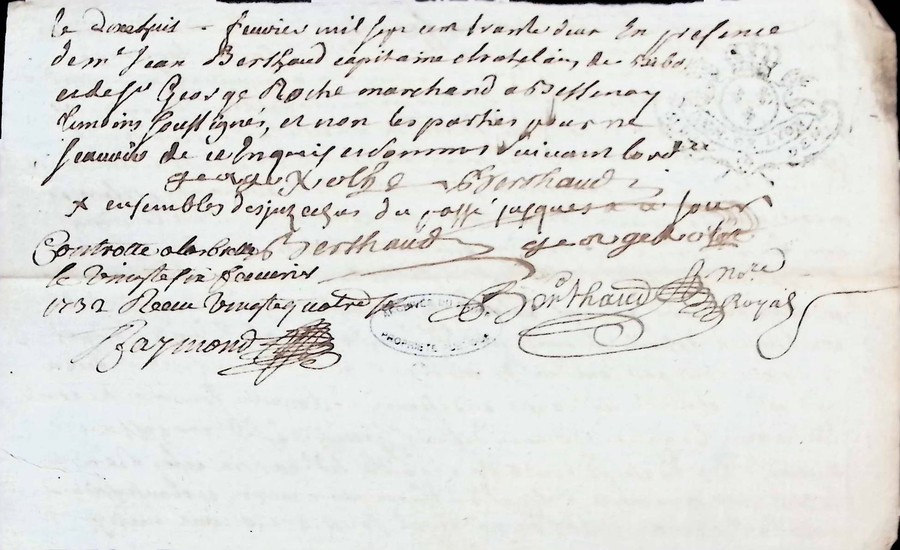 le dixhuit fevrier mil sept cent trante deux En presence
de mr Jean Berthaud capitaine chatelain de
et de Sr George Roche marchand a Bessenay
temoins soussignés, et non les parties pour ne
scavoir de ce Enquis et sommés suivant lord.re
george Roche Berthaud
x ensembles des du passé jusques a ce jour
Controlle a la Berthaud george Roche
le vingt six fevrier
1732 Receu vingt quatre s Berthaud no.re Royal
Raymond
PROPRIETE